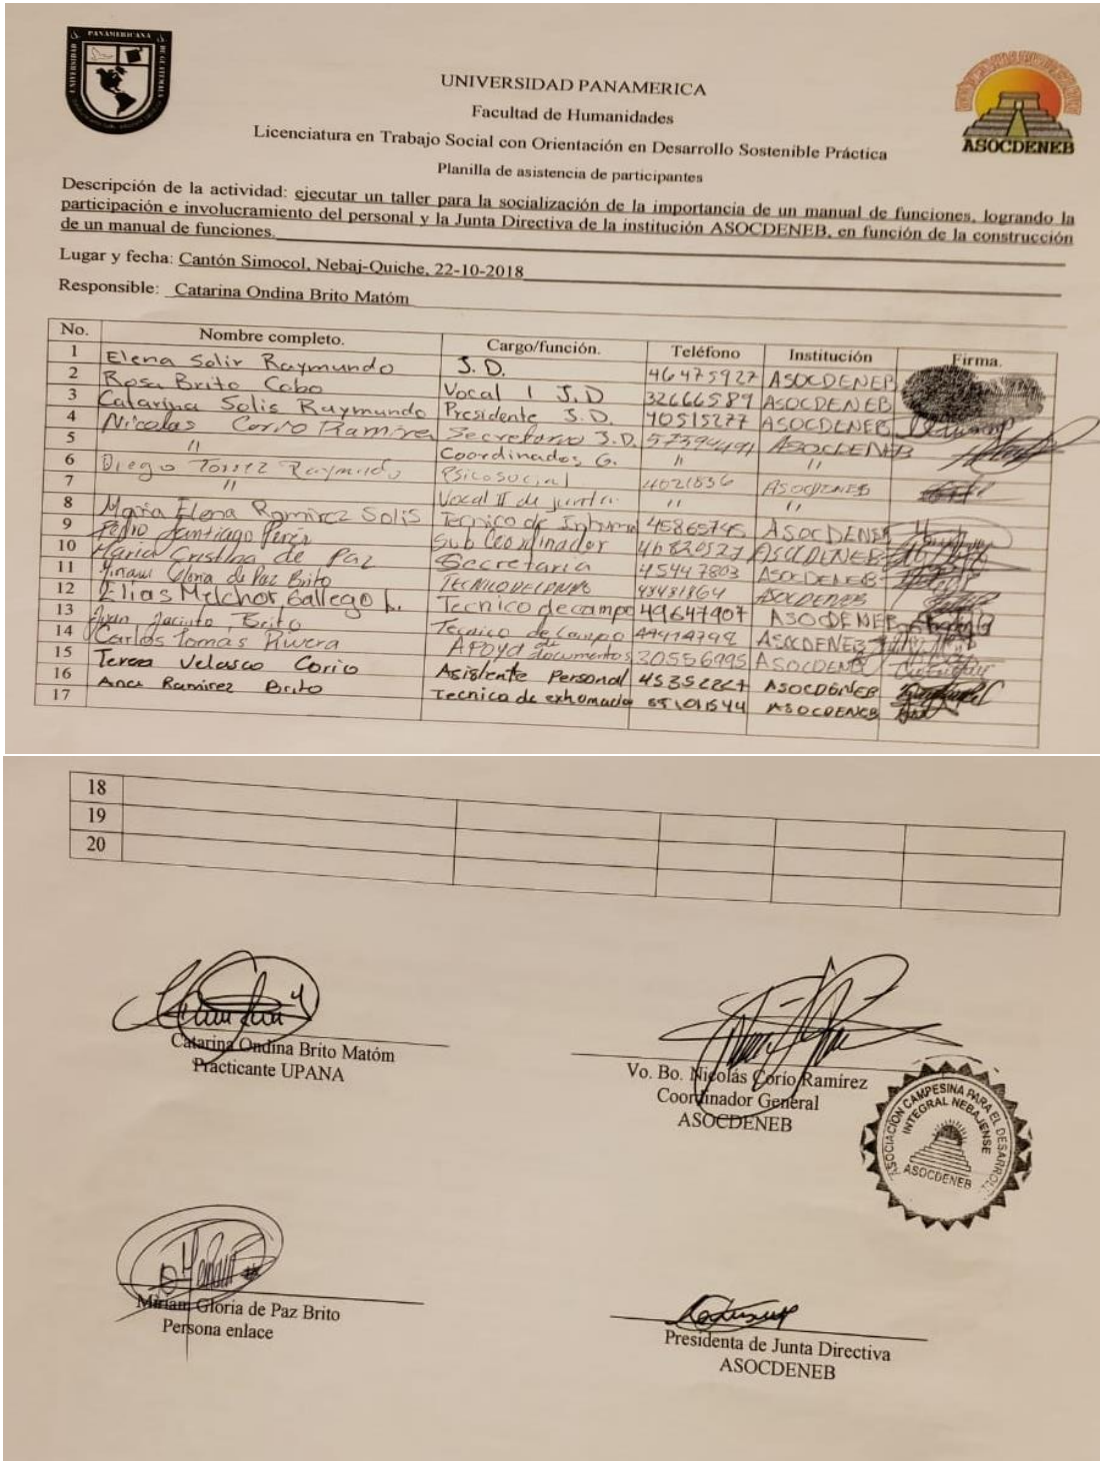 UNIVERSIDAD PANAMERICANA DE GUATEMALA
ASOCDENEB
UNIVERSIDAD PANAMERICA
Facultad de Humanidades
Licenciatura en Trabajo Social con Orientación en Desarrollo Sostenible Práctica
Planilla de asistencia de participantes
Descripción de la actividad: ejecutar un taller para la socialización de la importancia de un manual de funciones, logrando la
participación e involucramiento del personal y la Junta Directiva de la institución ASOCDENEB, en función de la construcción
de un manual de funciones.
Lugar y fecha: Cantón Simocol, Nebaj-Quiche, 22-10-2018
Responsible: Catarina Ondina Brito Matóm
No. Nombre completo. Cargo/función. Teléfono Institución Firma.
1 Elena Solis Raymundo J. D. 46475927 ASOCDENEB
2 Rosa Brito Cobo Vocal I J.D 32666589 ASOCDENEB
3 Catarina Solis Raymundo Presidente J.D. 40515277 ASOCDENEB
4 Nicolas Corio Ramirez Secretario J.D. ASOCDENEB
5 " Coordinador G. " "
6 Diego Raymundo Psicosocial ASOCDENEB
7 " Vocal II de junta " "
8 Maria Elena Ramirez Solis Tecnico de 45865745 ASOCDENEB
9 Pedro Santiago Perez Sub Coordinador ASOCDENEB
10 Maria Cristina de Paz Secretaria 45447803 ASOCDENEB
11 Gloria de Paz Brito ASOCDENEB
12 Elias Melchor Gallego L. Tecnico de campo 49647907 ASOCDENEB
13 Juan Jacinto Brito Tecnico de Campo ASOCDENEB
14 Carlos Tomas Rivera Apoyo de documentos 30556995 ASOCDENEB
15 Teresa Velasco Corio Asistente Personal ASOCDENEB
16 Ana Ramirez Brito Tecnica de ASOCDENEB
17
18
19
20
Catarina Ondina Brito Matóm
Practicante UPANA
Vo. Bo. Nicolás Corío Ramírez
Coordinador General
ASOCDENEB
ASOCIACION CAMPESINA PARA EL DESARROLLO
INTEGRAL NEBAJENSE
ASOCDENEB
Miriam Gloria de Paz Brito
Persona enlace
Presidenta de Junta Directiva
ASOCDENEB